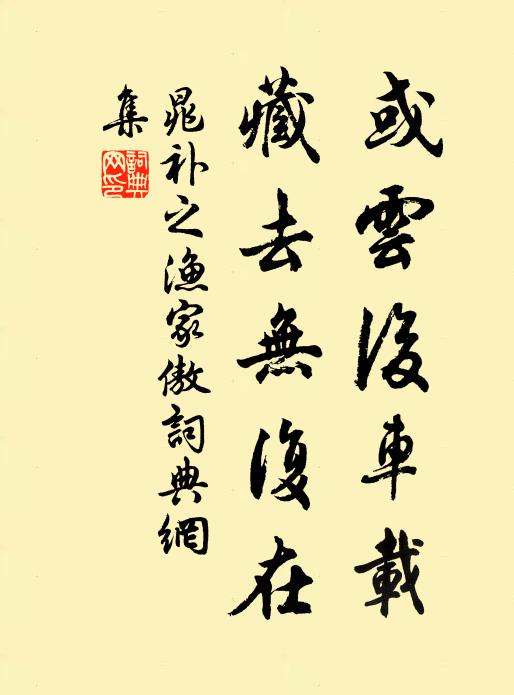 或雲後車載
藏去無復在
晁补之渔家傲詞典網
集
詞典
网印